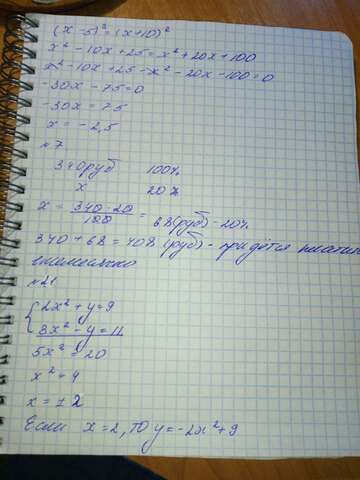 (x-5)²=(x+10)²
x²-10x+25=x²+20x+100
x²-10x+25-x²-20x-100=0
-30x-75=0
-30x=75
x=-2,5
№7
340руб 100%
x 20%
x = 340·20/100 = 68(руб)-20%
340+68=408 (руб)- придётся платить
ежемесячно
№21
{2x²+y=9
3x²-y=11
5x²=20
x²=4
x=±2
Если x=2, то y=-2x²+9